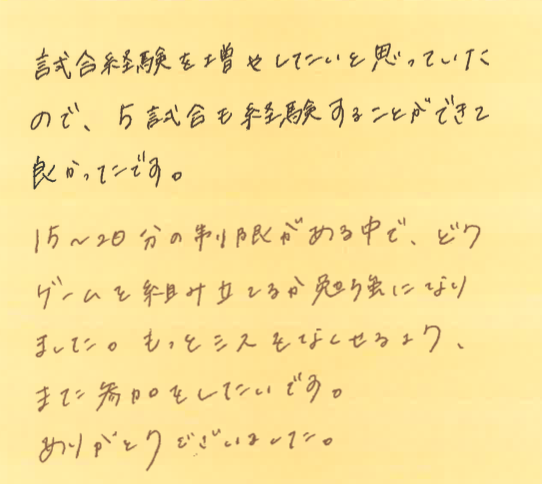 試合経験を増やしたいと思っていた
ので、5試合も経験することができて
良かったです。
15〜20分の制限がある中で、どう
ゲームを組み立てるか勉強になり
ました。もっとミスをなくせるよう、
また参加をしたいです。
ありがとうございました。